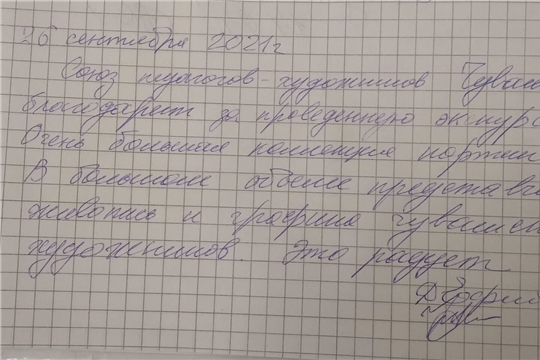 26 сентября 2021г
Союз педагогов-художников Чуваш
благодарит за проведенную экскурс
Очень большая коллекция картин
В большом объеме представле
живопись и графика чувашск
художников. Это радует